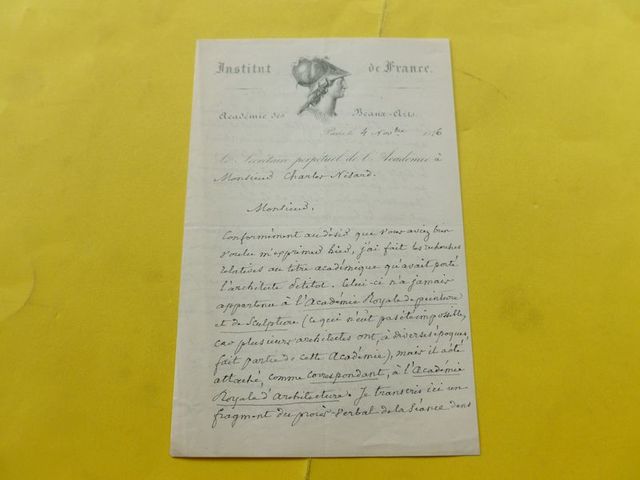 Institut de France.
Académie des Beaux-Arts.
Paris le 4 Nov.bre 1876
Le Secrétaire perpétuel de l'Académie à
Monsieur Charles Nisard.
Monsieur.
Conformément au désir que vous aviez bien
voulu m'exprimer hier, j'ai fait les recherches
relatives au titre académique qu'avait porté
l'architecte Petitot. Celui-ci n'a jamais
appartenu à l'Académie Royale de peinture
et de Sculpture (ce qui n'eut pas été impossible,
car plusieurs architectes ont, à diverses époques,
fait partie de cette Académie), mais il a été
attaché, comme correspondant, à l'Académie
Royale d'Architecture. Je transcris ici un
fragment du procès-verbal de la Séance dans